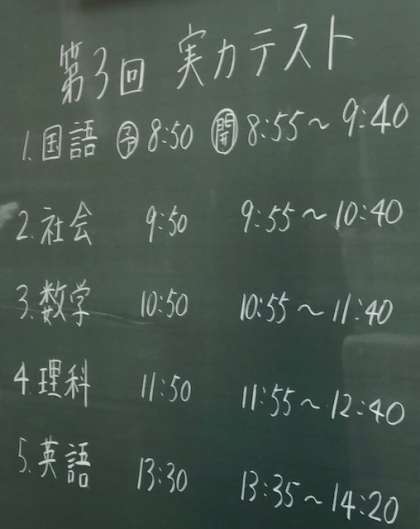 第3回 実力テスト
1.国語 予 8:50 開 8:55～9:40
2.社会 9:50 9:55～10:40
3.数学 10:50 10:55～11:40
4.理科 11:50 11:55～12:40
5.英語 13:30 13:35～14:20